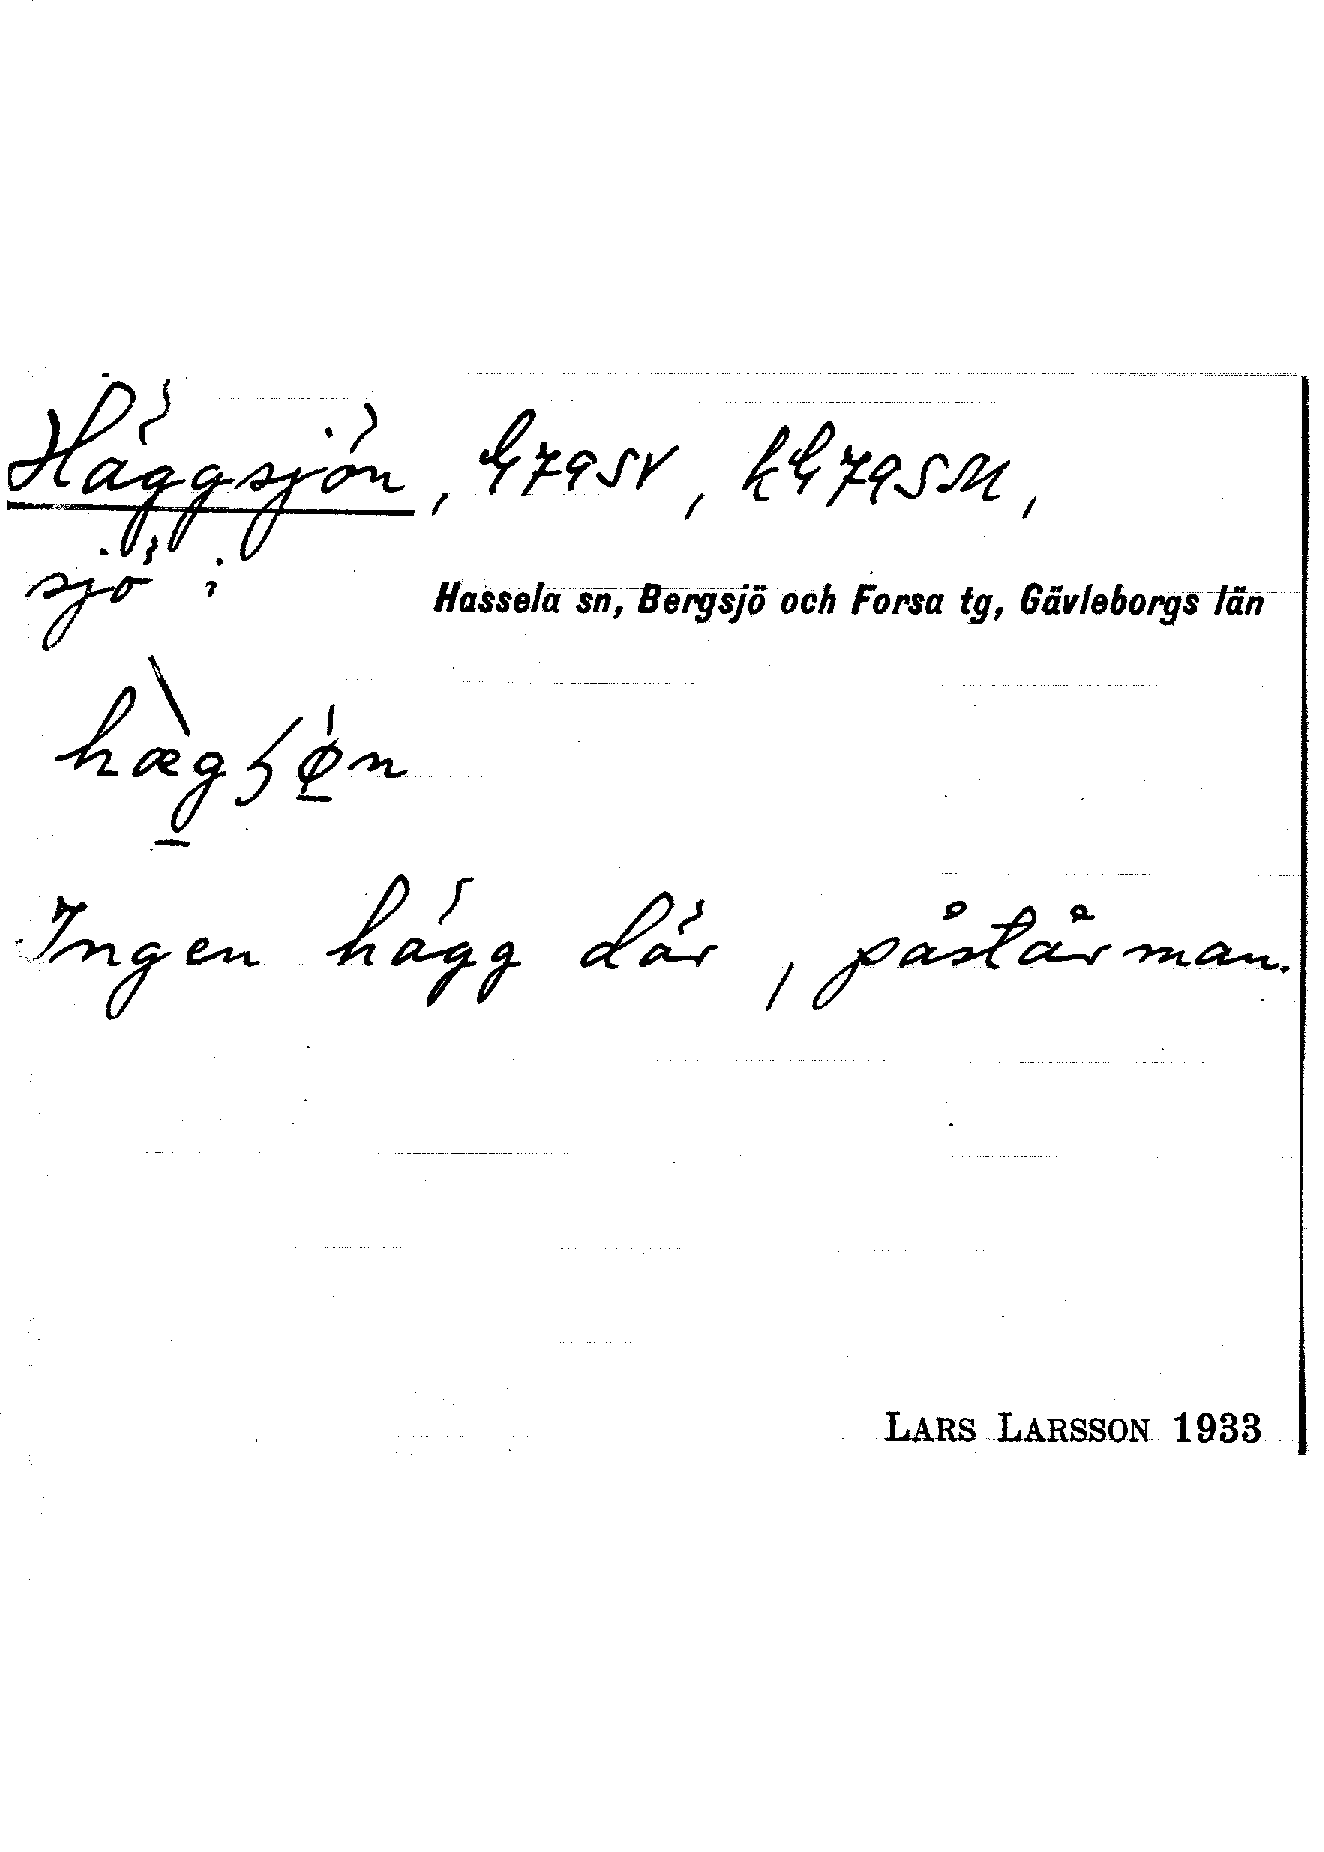 Häggsjön, G79SV, kG79SM,
sjö i Hassela sn, Bergsjö och Forsa tg, Gävleborgs län
Ingen hägg där, påstår man.
LARS LARSSON 1933